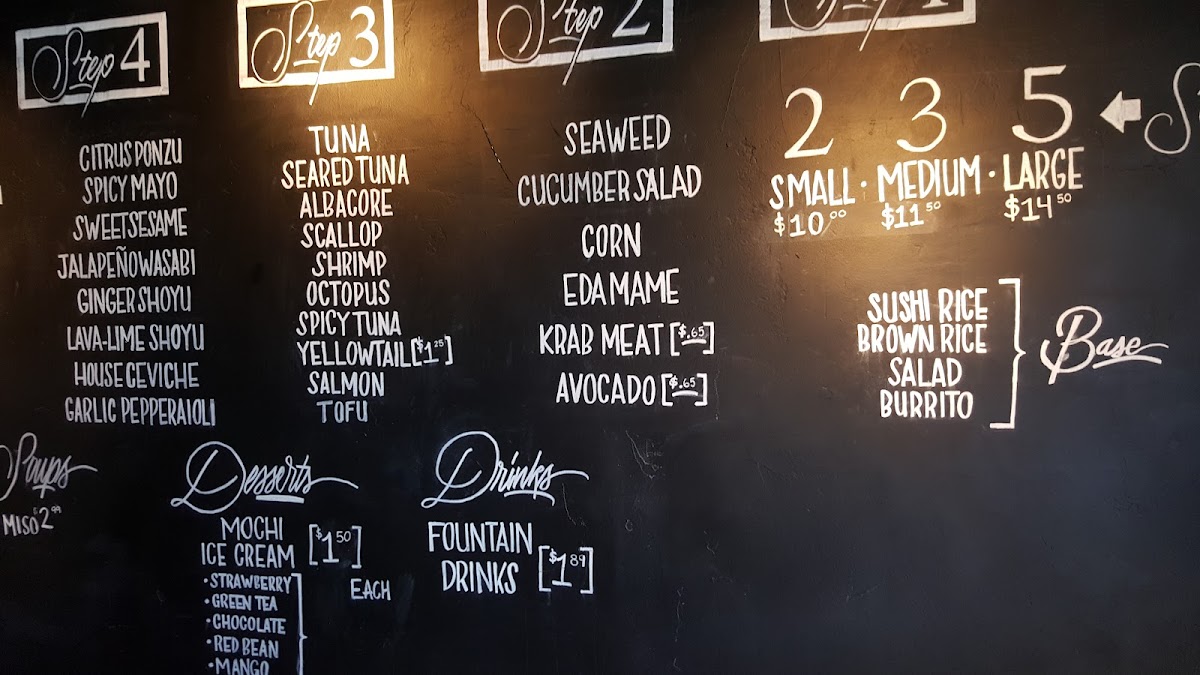 Step 4
CITRUS PONZU
SPICY MAYO
SWEET SESAME
JALAPEÑO WASABI
GINGER SHOYU
LAVA-LIME SHOYU
HOUSE CEVICHE
GARLIC PEPPER AIOLI
Step 3
TUNA
SEARED TUNA
ALBACORE
SCALLOP
SHRIMP
OCTOPUS
SPICY TUNA
YELLOWTAIL [$1.25]
SALMON
TOFU
Step 2
SEAWEED
CUCUMBER SALAD
CORN
EDAMAME
KRAB MEAT [$.65]
AVOCADO [$.65]
Step 1
2 3 5
SMALL · MEDIUM · LARGE
$10.00 $11.50 $14.50
SUSHI RICE
BROWN RICE
SALAD
BURRITO
Base
Soups
MISO $2.99
Desserts
MOCHI
ICE CREAM [$1.50]
EACH
• STRAWBERRY
• GREEN TEA
• CHOCOLATE
• RED BEAN
• MANGO
Drinks
FOUNTAIN
DRINKS [$1.89]